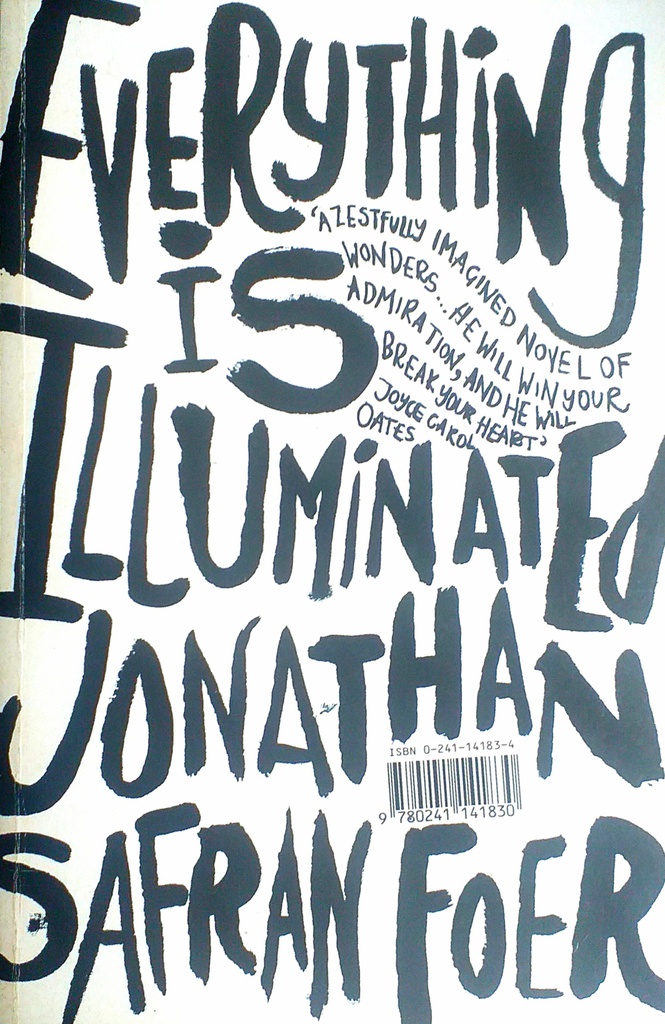 EVERYTHiNg
iS
ILLUMiNATEd
'A ZESTFULLY IMAGINED NOVEL OF
WONDERS... HE WILL WIN YOUR
ADMIRATION, AND HE WILL
BREAK YOUR HEART'
JOYCE CAROL
OATES
JONATHAN
ISBN 0-241-14183-4
9 780241 141830
SAFRAN FOER